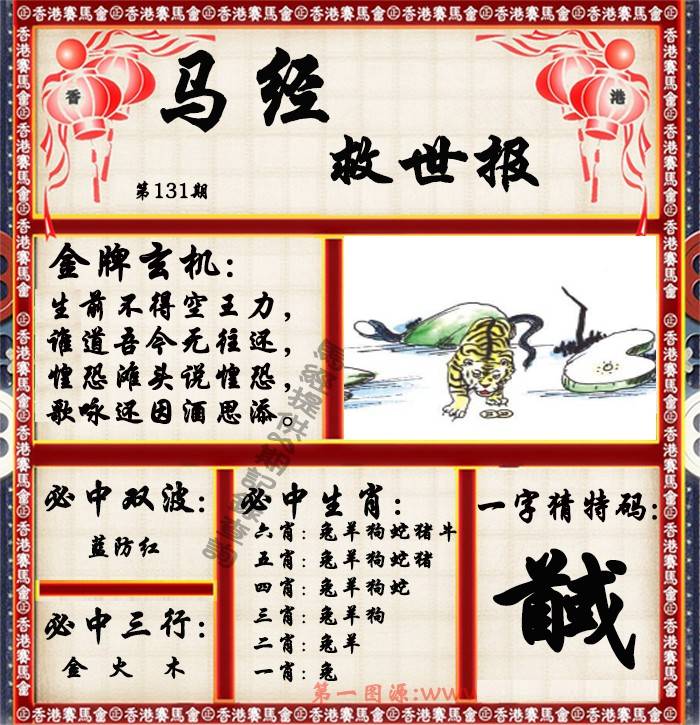 香港賽馬會
香
港
马经
救世报
第131期
金牌玄机：
生前不得空王力，
谁道吾今无往还，
惶恐滩头说惶恐，
歌咏还因酒思添。
必中双波：
蓝防红
必中三行：
金 火 木
必中生肖：
六肖：兔羊狗蛇猪牛
五肖：兔羊狗蛇猪
四肖：兔羊狗蛇
三肖：兔羊狗
二肖：兔羊
一肖：兔
一字猜特码：
馘
第一图源:www